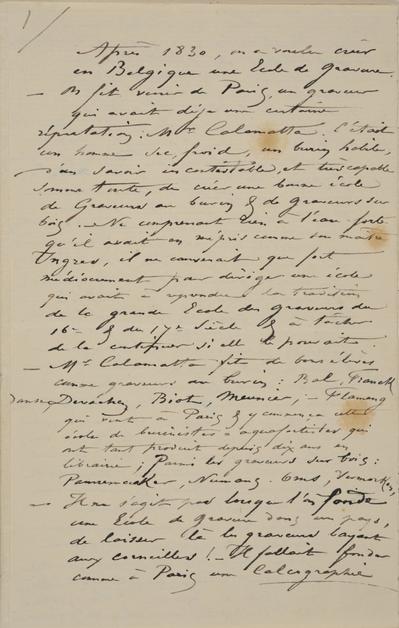 1/
Après 1830, on a voulu créer
en Belgique une Ecole de Gravure.
— On fit venir de Paris, un graveur
qui avait déja une certaine
réputation: Mr Calamatta. C'était
un homme sec, froid, un burin habile,
d'un savoir incontestable, et très capable
somme toute, de créer une bonne école
de Graveurs au burin & de graveurs sur
bois. Ne comprenant rien à l'eau-forte
qu'il avait en mépris comme son maître
Ingres, il ne convenait que fort
médiocrement pour diriger une école
qui avait à reprendre les traditions
de la grande Ecole des graveurs du
16me & du 17me Siècle & à tâcher
de la continuer si elle le pouvait.
— Mr Calamatta fit de bons élèves
comme graveurs au burin: Bal, Franck
Danse, Devachez, Biot, Meunier, — Flameng
qui vint à Paris & y commença cette
école de burinistes & aquafortistes qui
ont tant produit depuis dix ans en
librairie; Parmi les graveurs sur bois:
Pannemaker, Vermorken,
— Il ne s'agit pas lorsque l'on fonde
une Ecole de gravure dans un pays,
de laisser là les graveurs bayant
aux corneilles! — Il fallait fonder
comme à Paris une Calcographie